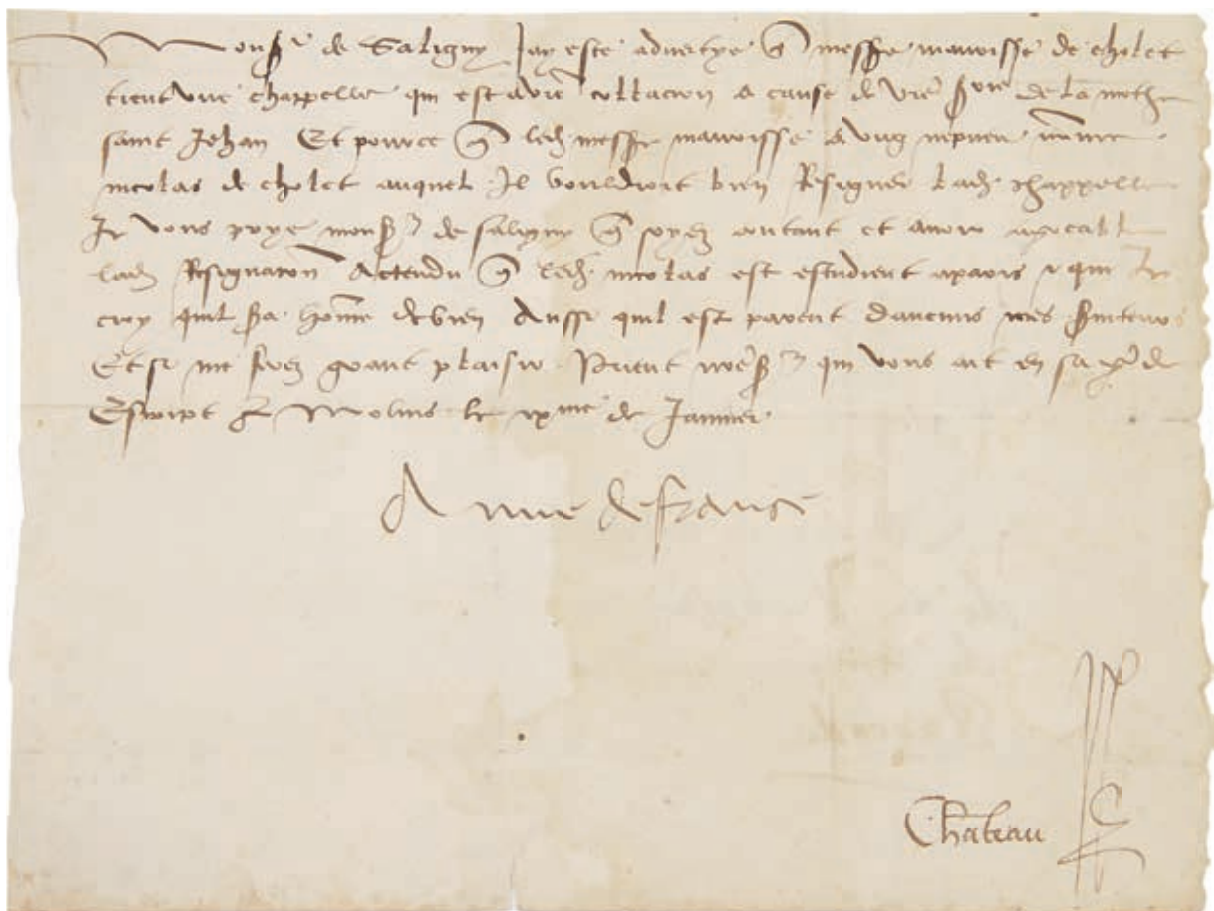 Mons^r de Saligny Jay este advertye q̃ messe mauroisse de cholet
tient une chappelle qui est a vr̃e collacion a cause de vr̃e s^rie de la mothe
saint Jehan Et pource q̃ led messe mauroisse a ung nepveu nõme
nicolas de cholet auquel Il vouldroit bien Resigner lad chappelle
Je vous prye mons^r de saligny q̃ soyez contant et avoir agreable
lad Resignacõn Actendu q̃ led nicolas est estudient a paris & qui Je
croy quil sa hõme de bien Aussi quil est parent daucuns mes s̃viteurs
Et si me ferez grant plaisir Priant nr̃e s^r qui vous ait en sa g^de
Escript a Molins le ix^me de Janvier
Anne de france
Chãteau